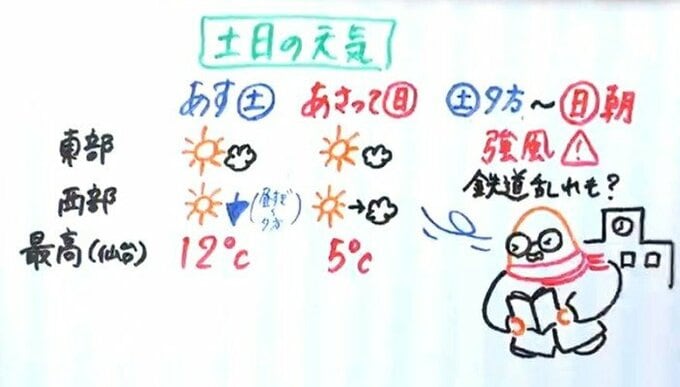 土日の元気
あす土 あさって日 土夕方～日朝
東部 強風⚠
西部 (昼すぎ～夕方) 鉄道乱れも?
最高(仙台) 12℃ 5℃